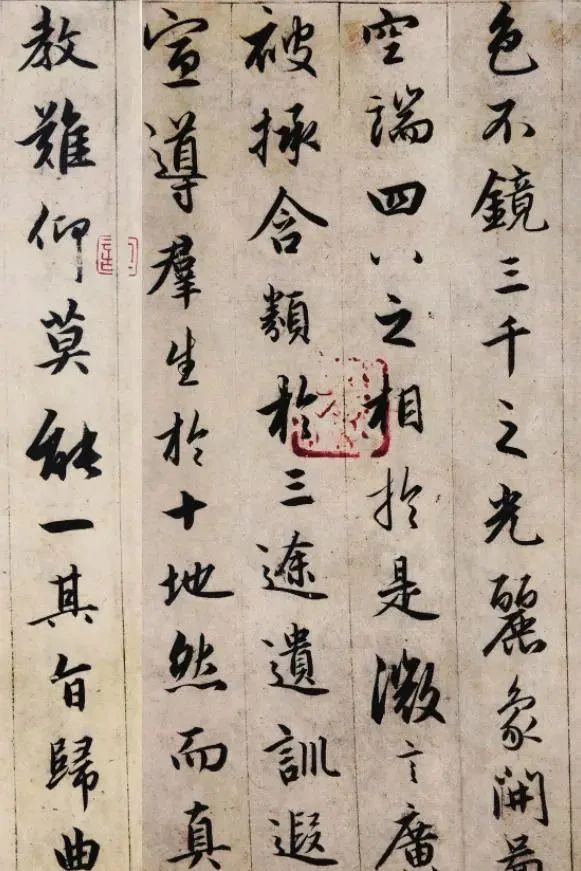 色不鏡三千之光麗象開
空端四八之相於是微言廣
被拯含類於三途遺訓遐
宣導羣生於十地然而真
教難仰莫能一其旨歸曲